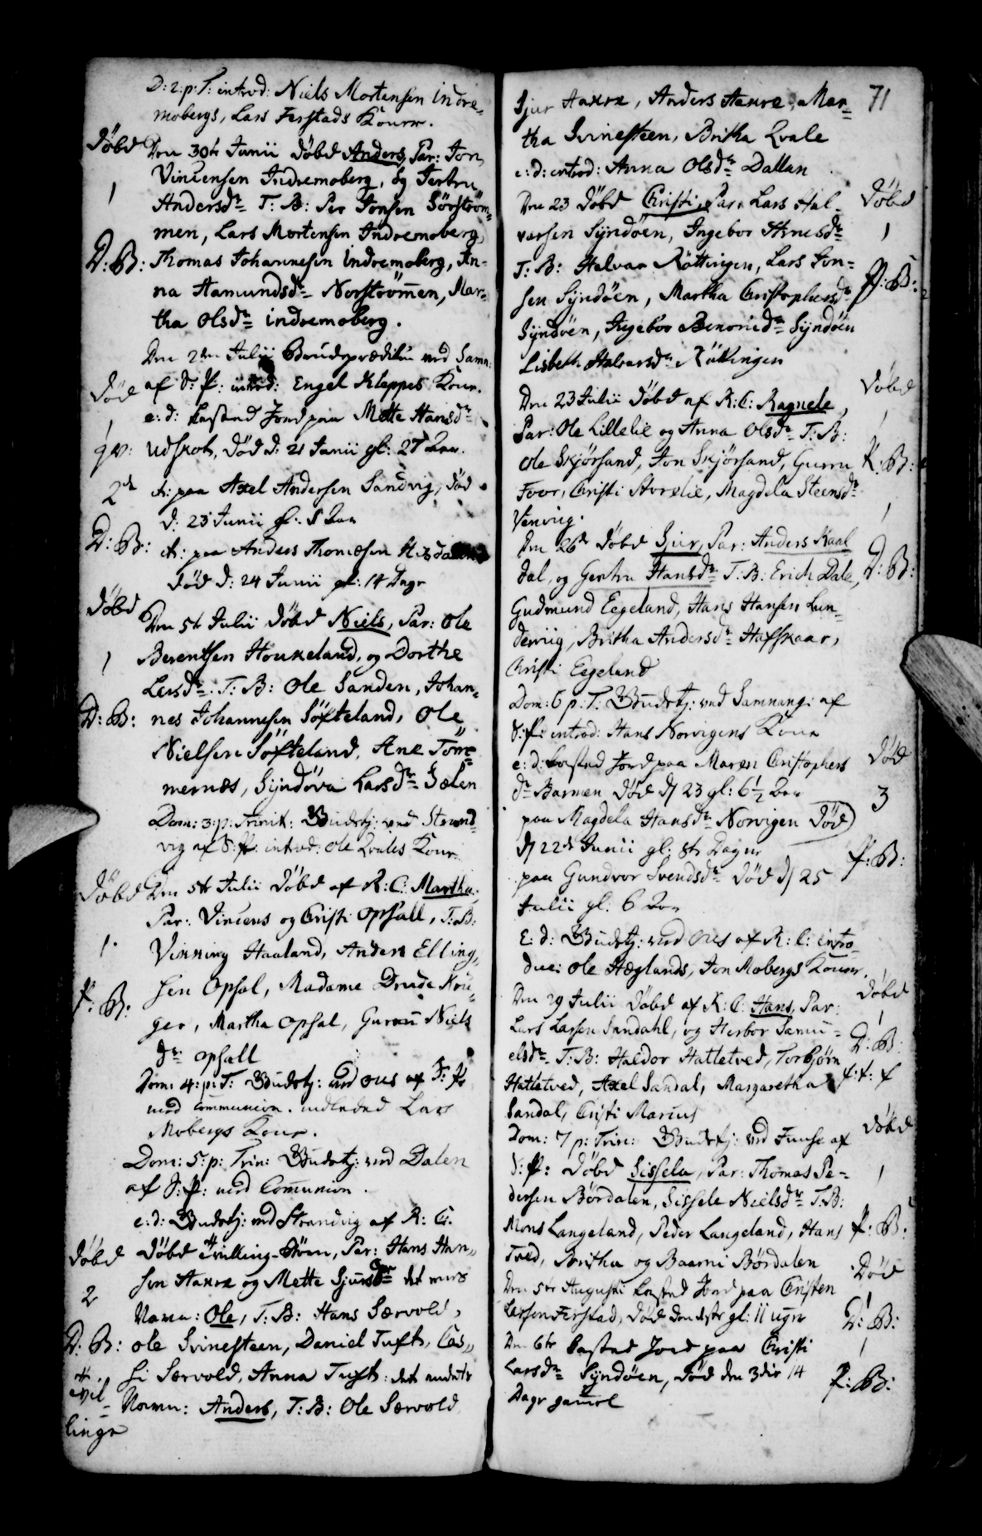 D: 2: p: T: introd: Niels Mortensen Indre-
mobergs, Lars Ferstads Koner.
Døbd Den 30te Junii Døbd Anders, Par: Jon
Vincensen Indremoberg, og Gertru
1 Andersdr T: B: Per Jonsen Sörström-
men, Lars Mortensen Indremoberg,
D: B: Thomas Johannesen Indremoberg, An-
na Hamundsdr Norströmen, Mar-
tha Olsdr indremoberg.
Den 2den Julii Brudeprædiken ved Samn:
Død af S: P: introd: Engel Kleppes Kone.
1 e: d: kastend Jord paa Mette Hansdr
qv: Udskot, død d: 21 Junii gl: 27 Aar.
2d it: paa Axel Andersen Sandvig, død
d: 23 Junii gl: 8 Aar
D: B: it: paa Anders Thomæsen
død d: 24 Junii gl: 14 Dage
Døbd Den 5te Julii Døbd Niels, Par: Ole
1 Berentsen Houkeland, og Dorthe
Larsdr: T: B: Ole Sanden, Johan-
D: B: nes Johannesen Söfteland, Ole
Nielsen Söfteland, Ane Tömme
mernæs, Syndöva Larsdr Sælen
Dom: 3: p: Trinit: Gudstj: ved Strand-
vig af S: P: introd: Ole Qvales Kone
Døbd Den 5te Julii Døbd af R: C: Martha,
Par: Vincens og Christi Opsall, T: B:
1. Vinning Haaland, Anders Elling-
P: B: sen Opsal, Madame Drude Krü-
ger, Martha Opsal, Guron Niels
dr Opsall
Dom: 4: p: T: Gudstj: ved Ous af S: P:
med Communion. indledned Lars
Mobergs Kone.
Dom: 5: p: Trin: Gudstj: ved Dalen
af S: P: med Communion.
e: d: Gudstj: ved Strandvig af R: C.
Døbd Døbd Tvilling-Börn, Par: Hans Han-
2 sen Haxre og Mette Sjursdr det eene
Navn: Ole, T: B: Hans Særvold,
D: B: Ole Svinesteen, Daniel Tuft, Cis-
it: si Særvold, Anna Tuft: det andets
tvil- Navn: Anders, T: B: Ole Særvold
linge
71
Sjur Haxre, Anders Haxre, Mar-
tha Svinesteen, Britha Qvale
e: d: introd: Anna Olsdr Dallan
Den 23 Døbd Christi, Par: Lars Hal- Døbd
versen Syndöen, Ingebor Arnesdr 1
T: B: Halvar Röttingen, Lars Jon- P: B:
sen Syndöen, Martha Christophersdr
Syndöen, Ingebor Benoniedr Syndöen
Lisbeth Halvarsdr Röttingen
Den 23 Julii Døbd af R: C: Ragnele, Døbd
Par: Ole Lillelie og Anna Olsdr T: B: 1
Ole Skjörsand, Jon Skjörsand, Gurru K: B:
Foer, Christi Avrelie, Magdela Steensdr 1
Venvig.
Den 26de Døbd Sjur, Par: Anders Kaal
dal, og Gertru Hansdr T: B: Erich Dale, D: B:
Gudmund Eegeland, Hans Hansen Lun-
derviig, Britha Andersdr Hafskaar,
Christi Eegeland
Dom: 6 p: T: Gudstj: ved Samnang: af
S: P: introd: Hans Norvigens Kone
e: d: kastend Jord paa Maren Christophers Død
dr Barmen død d 23 gl: 6½ Aar 3
paa Magdela Hansdr Norvigen død
d 22de Junii gl: 8te Dager P: B:
paa Gundvor Svendsdr død d 25
Julii gl: 6 Aar
E: d: Gudstj: ved Ous af R: C: intro-
duc: Ole Hæglands, Jon Mobergs Koner,
Den 29 Julii Døbd af R: C: Hans, Par: Døbd
Lars Larsen Sandahl, og Herbor Samu- 1
elsdr T: B: Haldor Hatletved, Torbjörn D: B:
Hatletved, Axel Sandal, Margaretha
Sandal, Christi Marcus
Dom: 7 p: Trin: Gudstj: ved Fuuse af Døbd
S: P: Døbd Sissela, Par: Thomas Pe- 1
dersen Bördalen, Sissele Nielsdr T: B:
Mons Langeland, Peder Langeland, Hans P: B:
Tved, Britha og Baarni Bördalen
Den 5te Augusti kastend Jord paa Christen Død
Larsen Ferstad, død gl: 11 uger D: B:
Den 6te kastend Jord paa Christi 1
Larsdr Syndöen, død den 3die 14 P: B:
Dage gammel